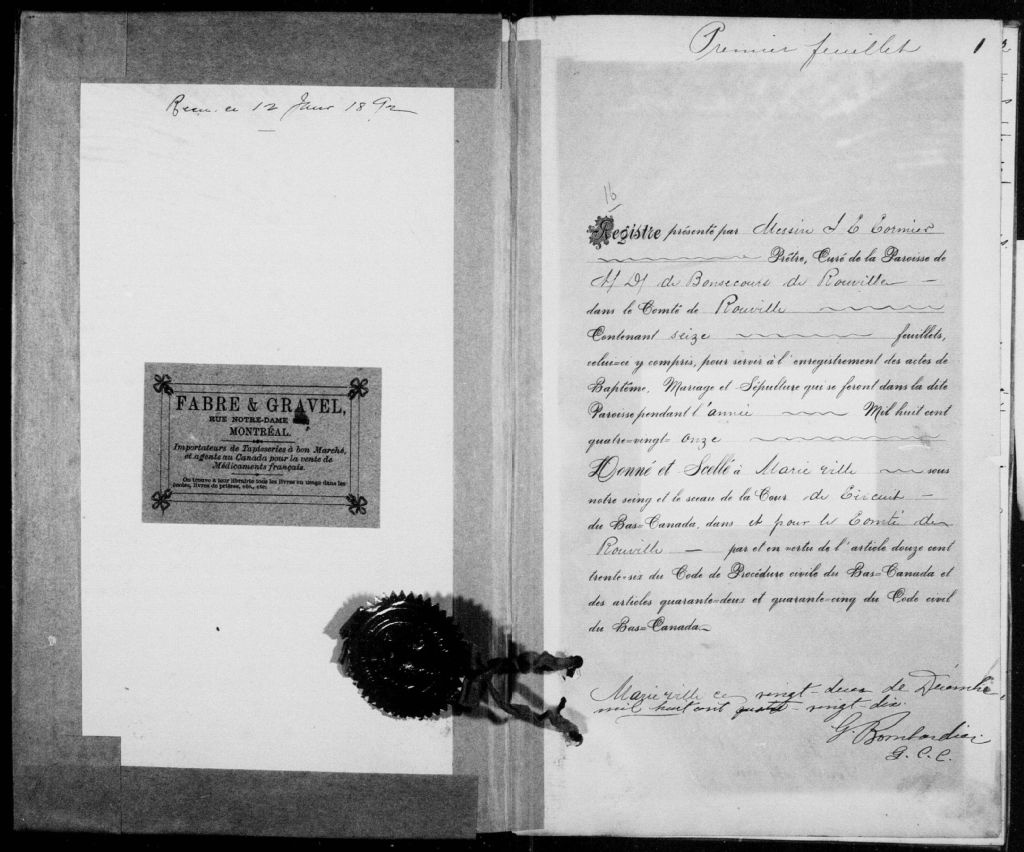 Recu ce 12 Janr 1892
FABRE & GRAVEL,
RUE NOTRE-DAME
MONTRÉAL.
Importateurs de Tapisseries à bon Marché,
et agents au Canada pour la vente de
Médicaments français.
On trouve à leur librairie tous les livres en usage dans les
écoles, livres de prières, etc., etc.
Premier feuillet 1
16
Registre présenté par Messire J E Cormier
Prêtre, Curé de la Paroisse de
N D de Bonsecours de Rouville
dans le Comté de Rouville
Contenant seize feuillets,
celui-ci y compris, pour servir à l'enregistrement des actes de
Baptême, Mariage et Sépulture qui se feront dans la dite
Paroisse pendant l'année Mil huit cent
quatre-vingt-onze
Donné et Scellé à Marieville sous
notre seing et le sceau de la Cour de Circuit
du Bas-Canada, dans et pour le Comté de
Rouville par et en vertu de l'article douze cent
trente-six du Code de Procédure civile du Bas-Canada et
des articles quarante-deux et quarante-cinq du Code civil
du Bas-Canada
Marieville ce vingt-deux de Décembre
mil huit cent quatre-vingt-dix.
G. Bombardier
G. C. C.